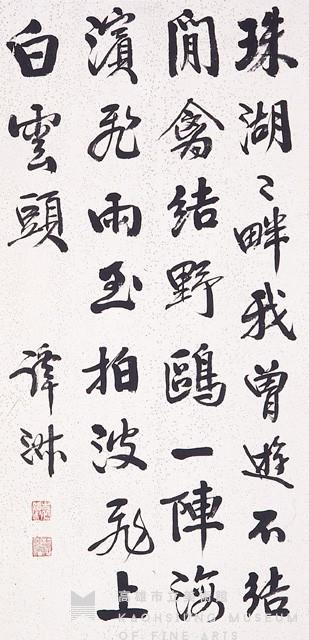 珠湖〻畔我曾遊不結
閒禽結野鷗一陣海
濱飛雨至拍波飛上
白雲頭
譚
高雄市立美術館
KAOHSIUNG MUSEUM
OF FINE ARTS